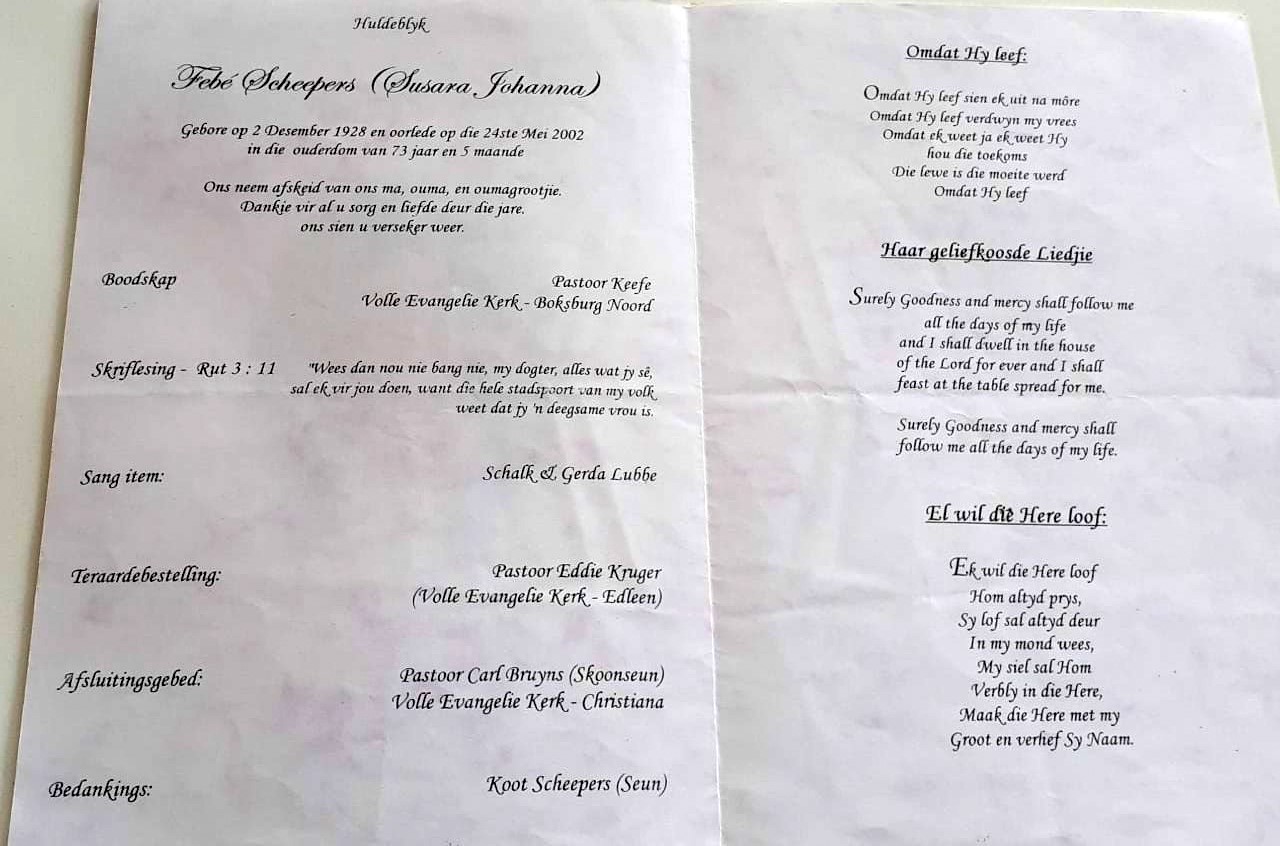 Huldeblyk
Febé Scheepers (Susara Johanna)
Gebore op 2 Desember 1928 en oorlede op die 24ste Mei 2002
in die ouderdom van 73 jaar en 5 maande
Ons neem afskeid van ons ma, ouma, en oumagrootjie.
Dankie vir al u sorg en liefde deur die jare.
ons sien u verseker weer.
Boodskap
Pastoor Keefe
Volle Evangelie Kerk - Boksburg Noord
Skriflesing - Rut 3 : 11 "Wees dan nou nie bang nie, my dogter, alles wat jy sê,
sal ek vir jou doen, want die hele stadspoort van my volk
weet dat jy 'n deegsame vrou is.
Sang item: Schalk & Gerda Lubbe
Teraardebestelling: Pastoor Eddie Kruger
(Volle Evangelie Kerk - Edleen)
Afsluitingsgebed: Pastoor Carl Bruyns (Skoonseun)
Volle Evangelie Kerk - Christiana
Bedankings: Koot Scheepers (Seun)
Omdat Hy leef:
Omdat Hy leef sien ek uit na môre
Omdat Hy leef verdwyn my vrees
Omdat ek weet ja ek weet Hy
hou die toekoms
Die lewe is die moeite werd
Omdat Hy leef
Haar geliefkoosde Liedjie
Surely Goodness and mercy shall follow me
all the days of my life
and I shall dwell in the house
of the Lord for ever and I shall
feast at the table spread for me.
Surely Goodness and mercy shall
follow me all the days of my life.
El wil die Here loof:
Ek wil die Here loof
Hom altyd prys,
Sy lof sal altyd deur
In my mond wees,
My siel sal Hom
Verbly in die Here,
Maak die Here met my
Groot en verhef Sy Naam.